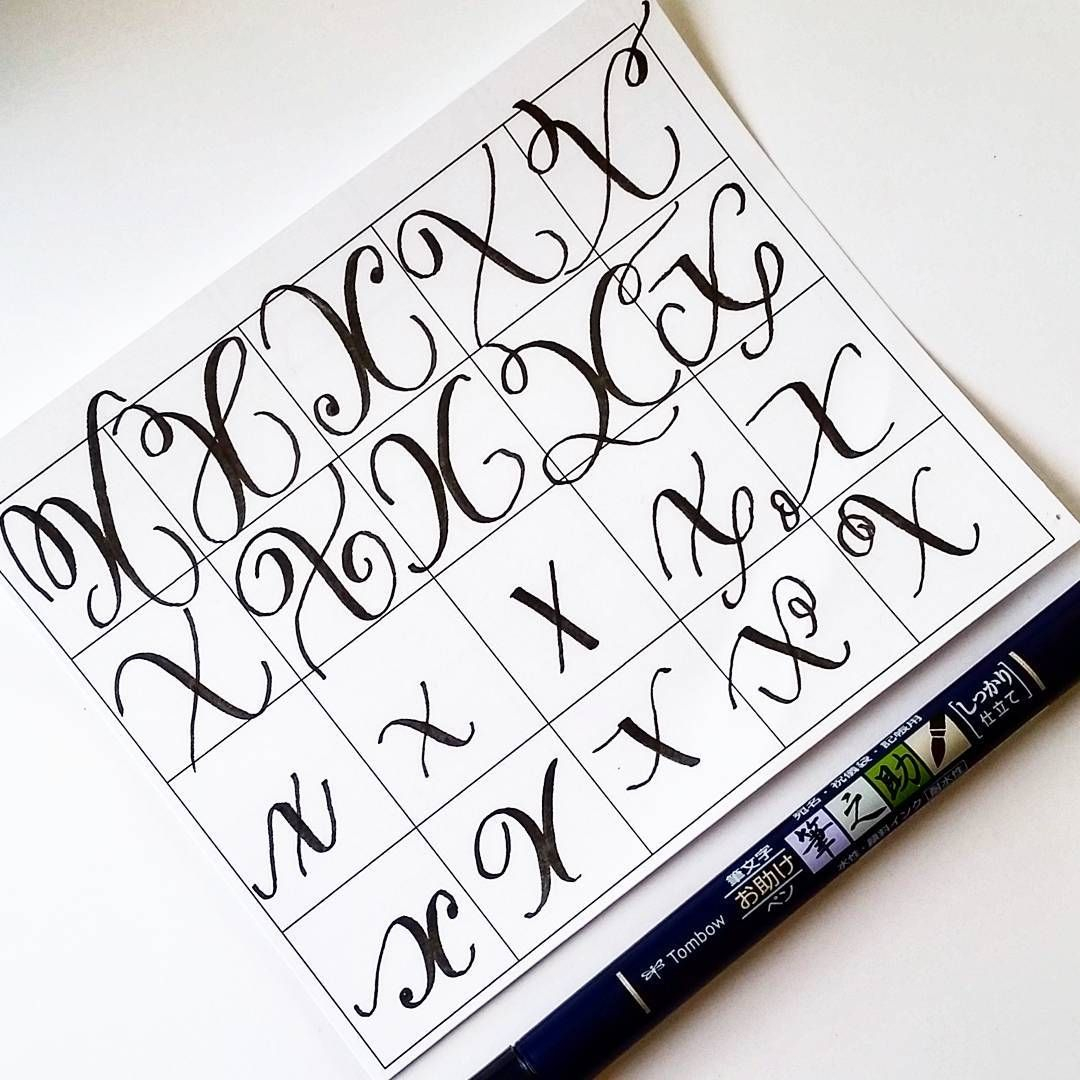 X X X X X
X X X X X
x x x x x
x x x x x
Tombow
筆文字
お助け
ペン
宛名・祝儀袋・記帳用
筆之助
水性・顔料インク[耐水性]
[しっかり]
仕立て